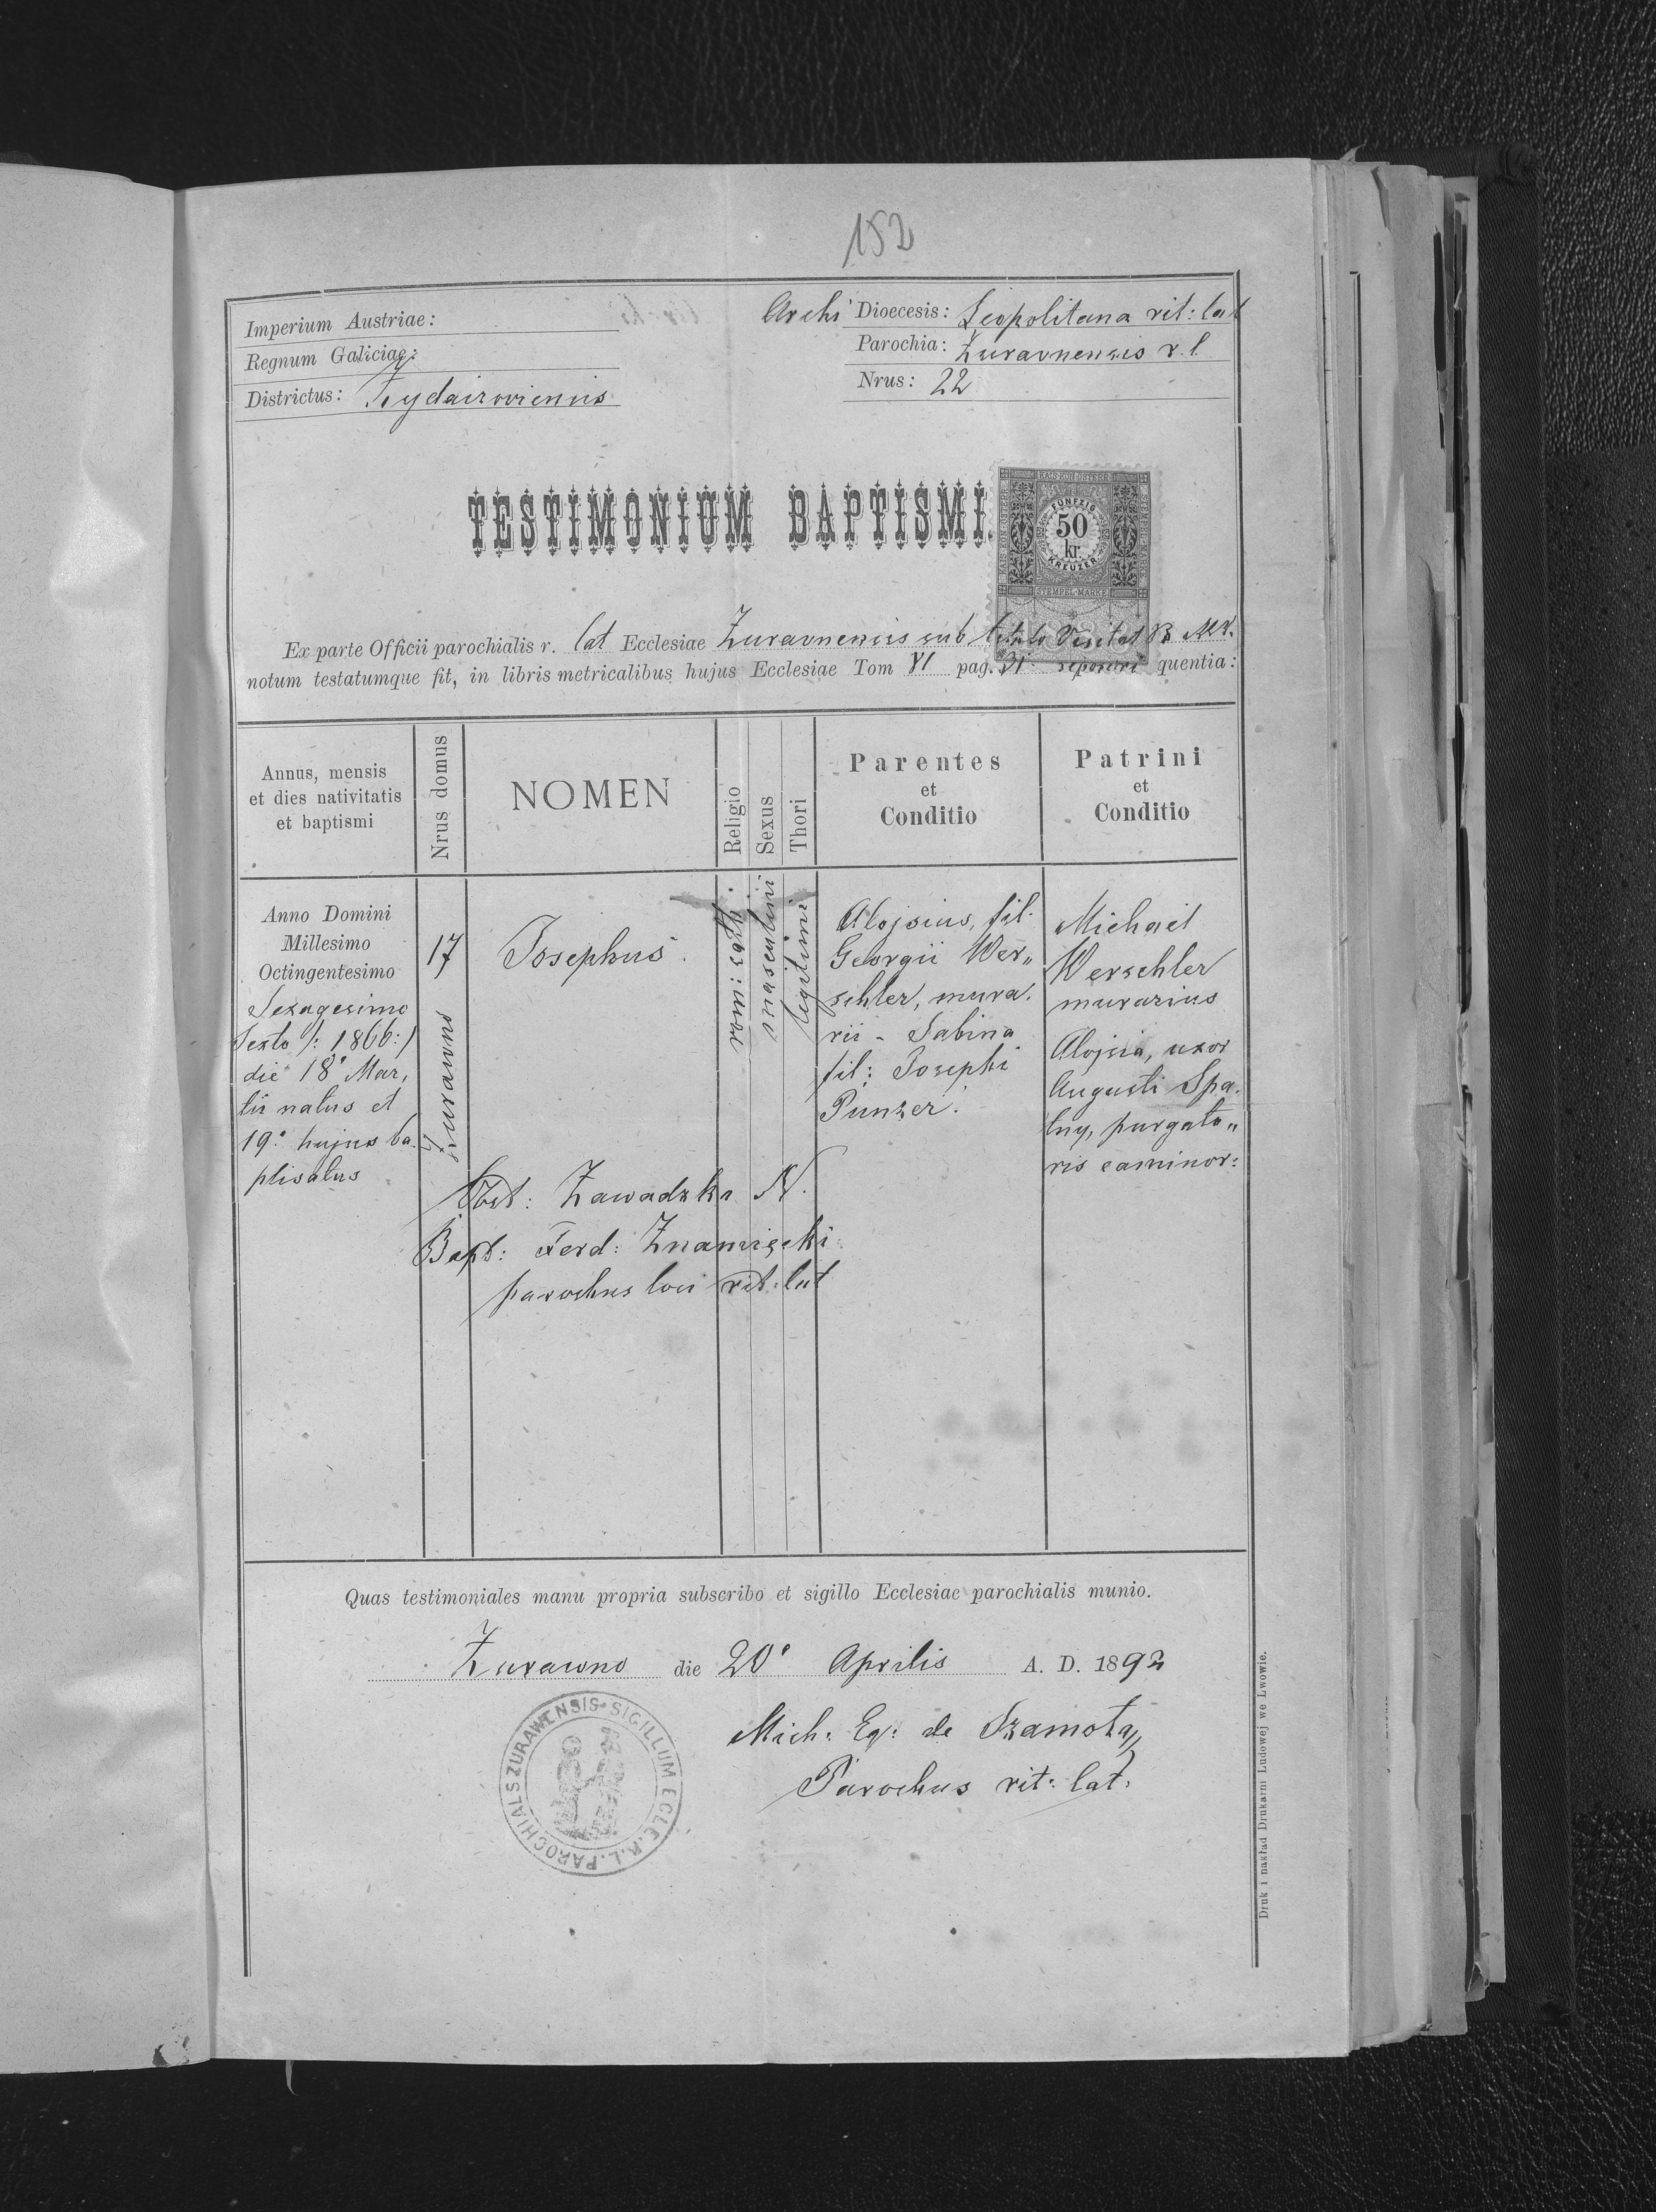 152
Imperium Austriae:
Regnum Galiciae:
Districtus: Żydaczoviensis
Archi Dioecesis: Leopolitana rit: lat
Parochia: Żuravnensis r. l.
Nrus: 22
TESTIMONIUM BAPTISMI.
KAIS. KÖN. ÖSTERR.
FÜNFZIG
50
kr.
KREUZER
STEMPEL-MARKE
Ex parte Officii parochialis r. lat Ecclesiae Żuravnensis sub titulo Visitat B M V.
notum testatumque fit, in libris metricalibus hujus Ecclesiae Tom VI pag. 31 reperiri quentia:
Annus, mensis
et dies nativitatis
et baptismi
Nrus domus
NOMEN
Religio
Sexus
Thori
Parentes
et
Conditio
Patrini
et
Conditio
Anno Domini
Millesimo
Octingentesimo
Sexagesimo
Sexto /: 1866 :/
die 18° Mar,
tii natus et
19° hujus ba
ptisatus
17
Żurawno
Josephus.
masculini
legitimi
Alojsius, fil.
Georgii Wer„
schler, mura.
rii - Sabina
fil: Josephi
Punzer.
Michael
Werschler
murarius
Alojsia, uxor
Augusti Spa.
tny, purgato„
ris caminor:
Obst: Zawadzka N.
Bapt: Ferd: Znamięcki
parochus loci rit: lat
Quas testimoniales manu propria subscribo et sigillo Ecclesiae parochialis munio.
Żurawno die 20° Aprilis A. D. 1892
Mich: Eq: de Szamota
Parochus rit: lat:
SIGILLUM ECLE. R. L. PAROCHIALS ZURAWENSIS
Druk i nakład Drukarni Ludowej we Lwowie.